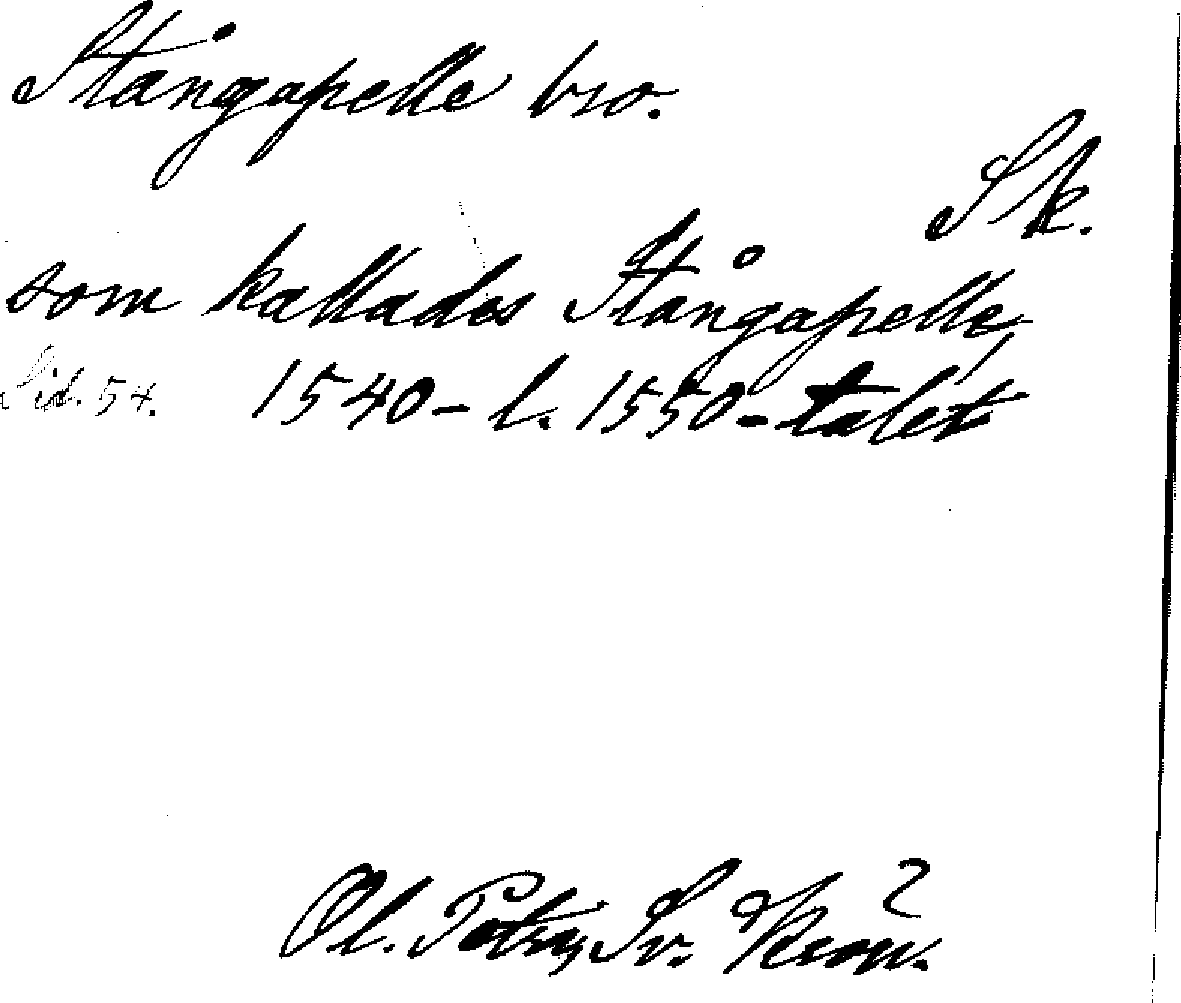 Stångapelle bro.
Sk.
som kallades Stångapelle,
Sid. 54. 1540- l. 1550-talet
Ol. Petry, Sv. Krön. 2